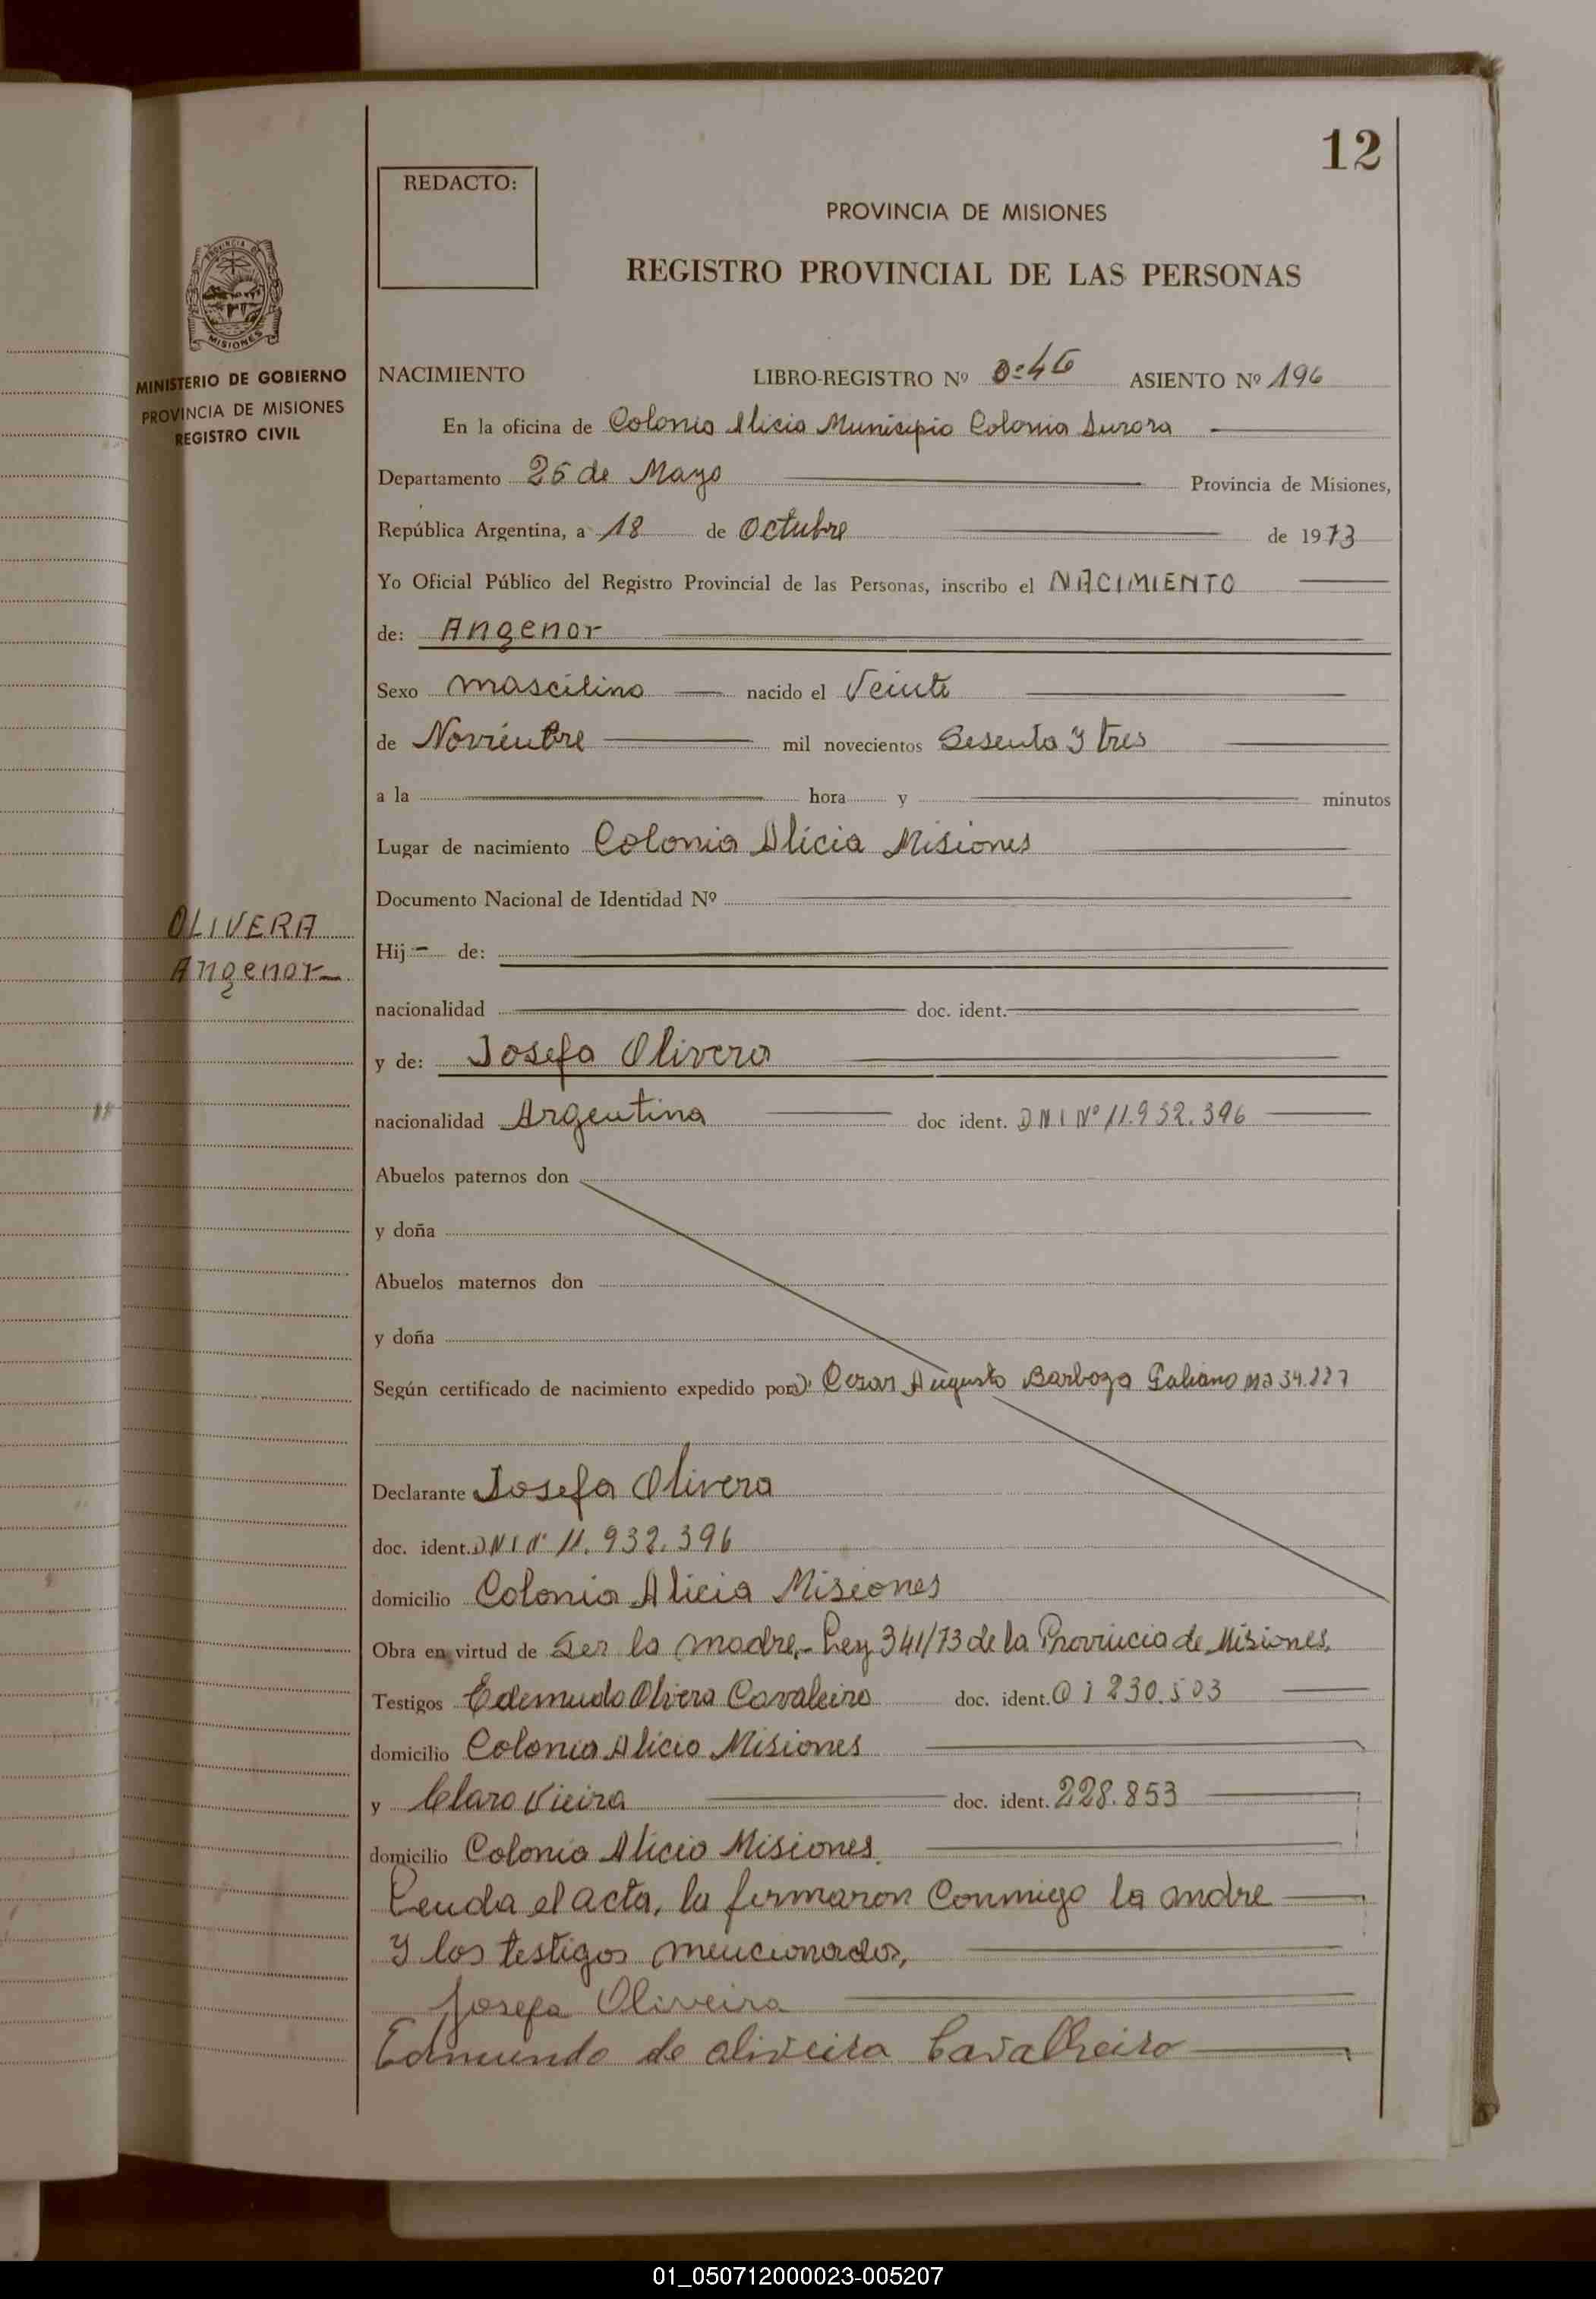 12
REDACTO:
PROVINCIA DE MISIONES
REGISTRO PROVINCIAL DE LAS PERSONAS
PROVINCIA DE
MISIONES
MINISTERIO DE GOBIERNO
PROVINCIA DE MISIONES
REGISTRO CIVIL
NACIMIENTO LIBRO-REGISTRO Nº 0=46 ASIENTO Nº 196
En la oficina de Colonia Alicia Municipio Colonia Aurora
Departamento 25 de Mayo Provincia de Misiones,
República Argentina, a 18 de Octubre de 1973
Yo Oficial Público del Registro Provincial de las Personas, inscribo el NACIMIENTO
de: Angenor
Sexo mascilino nacido el Veinte
de Noviembre mil novecientos Sesenta y tres
a la hora y minutos
Lugar de nacimiento Colonia Alicia Misiones
Documento Nacional de Identidad Nº
OLIVERA
Angenor
Hij- de:
nacionalidad doc. ident.
y de: Josefa Olivera
nacionalidad Argentina doc ident. DNI Nº 11.932.396
Abuelos paternos don
y doña
Abuelos maternos don
y doña
Según certificado de nacimiento expedido por Cesar Augusto Barboza Galiano
Declarante Josefa Olivera
doc. ident. DNI Nº 11.932.396
domicilio Colonia Alicia Misiones
Obra en virtud de Ser la madre.- Ley 341/73 de la Provincia de Misiones.
Testigos Edemundo Olivera Cavaleiro doc. ident. 01230.503
domicilio Colonia Alicia Misiones
y Claro Vieira doc. ident. 228.853
domicilio Colonia Alicia Misiones.
Leuda el acta, la firmaron Conmigo la madre
y los testigos mencionados,
Josefa Oliveira
Edmundo de oliveira Cavalheiro
01_050712000023-005207